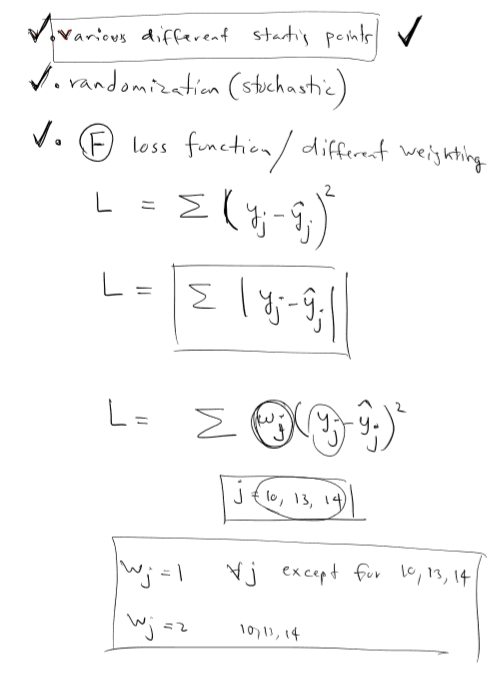 ✓. various different starting points ✓
✓. randomization (stochastic)
✓. (F) loss function / different weighting
L = Σ (y_j - ŷ_j)²
L = Σ |y_j - ŷ_j|
L = Σ w_j (y_j - ŷ_j)²
j ≠ 10, 13, 14
w_j = 1 ∀j except for 10, 13, 14
w_j = 2 10, 13, 14